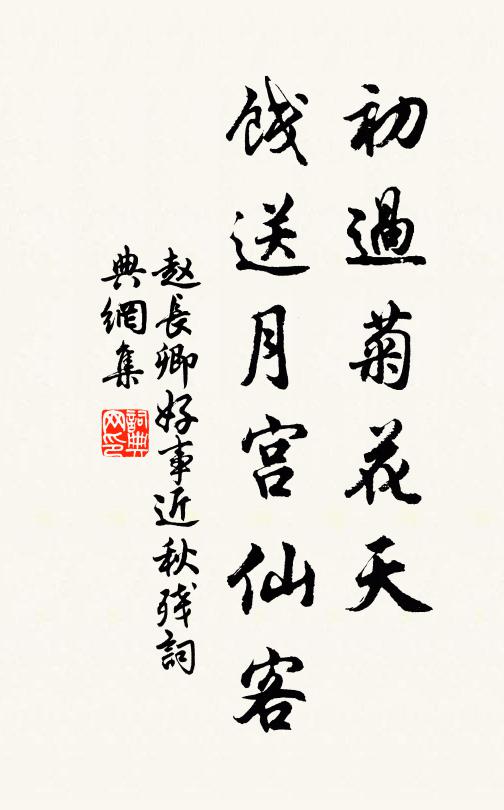 初過菊花天
餞送月宫仙客
赵長卿好事近秋残詞
典網集
詞典網印